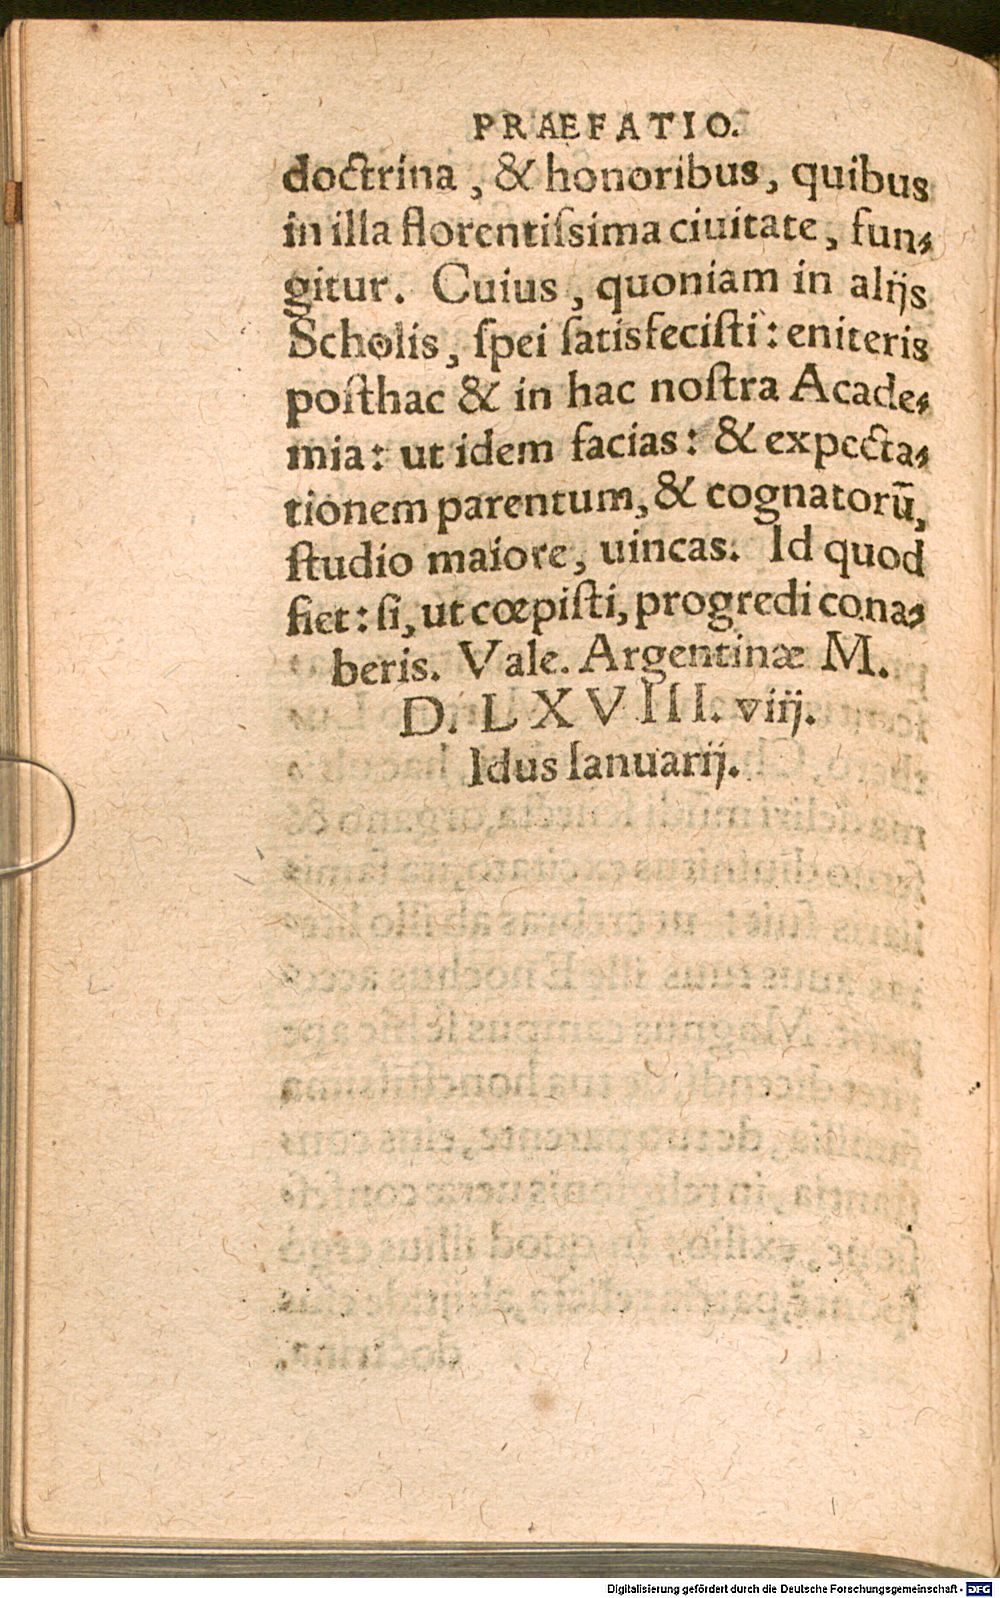 PRAEFATIO.
doctrina, & honoribus, quibus
in illa florentiſsima ciuitate, fun-
gitur. Cuius, quoniam in alijs
Scholis, ſpei ſatisfeciſti: eniteris
poſthac & in hac noſtra Acade-
mia: ut idem facias: & expecta-
tionem parentum, & cognatorū,
ſtudio maiore, uincas. Id quod
fiet: ſi, ut cœpiſti, progredi cona-
beris. Vale. Argentinæ M.
D. LXVIII. viij.
Idus Ianuarij.
Digitalisierung gefördert durch die Deutsche Forschungsgemeinschaft - DFG